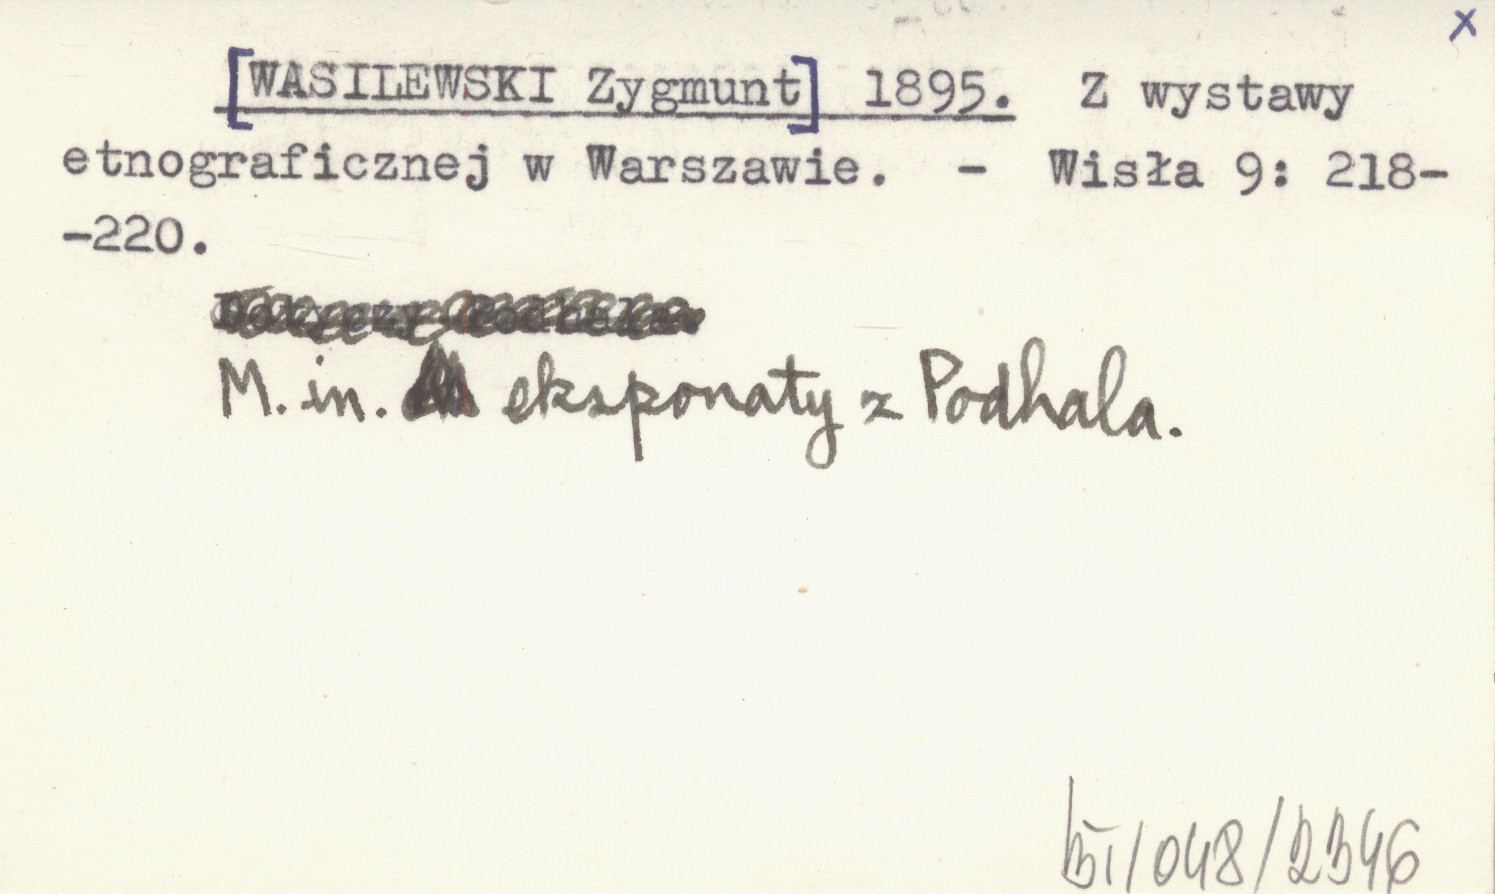 x
[WASILEWSKI Zygmunt] 1895. Z wystawy
etnograficznej w Warszawie. - Wisła 9: 218-
-220.
M. in. eksponaty z Podhala.
BI/048/2346